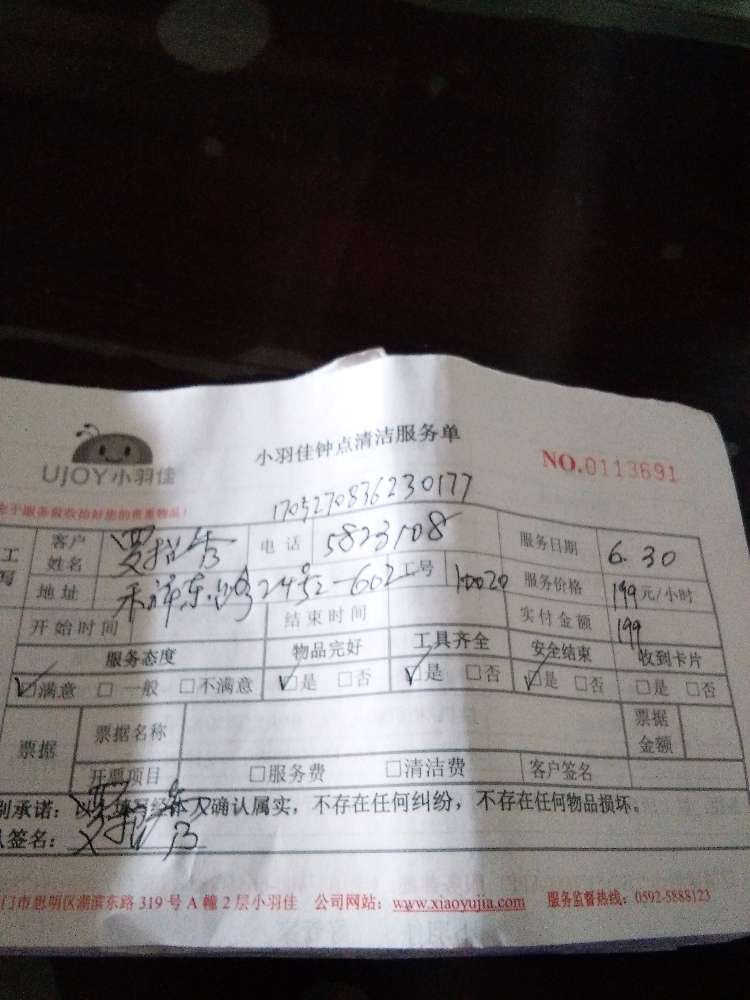 UJOY小羽佳
小羽佳钟点清洁服务单
NO.0113691
1705270836230177
于服务前收拾好您的贵重物品!
工 客户姓名 电话 5823108 服务日期 6.30
写 地址 禾祥东路24号2-602 工号 10020 服务价格 199元/小时
开始时间 结束时间 实付金额 199
服务态度 物品完好 工具齐全 安全结束 收到卡片
☑满意 □一般 □不满意 ☑是 □否 ☑是 □否 ☑是 □否 □是 □否
票据 票据名称 票据金额
开票项目 □服务费 □清洁费 客户签名
别承诺: 人确认属实,不存在任何纠纷,不存在任何物品损坏。
签名:
门市思明区湖滨东路 319 号 A 幢 2 层小羽佳 公司网站:www.xiaoyujia.com 服务监督热线:0592-5888123